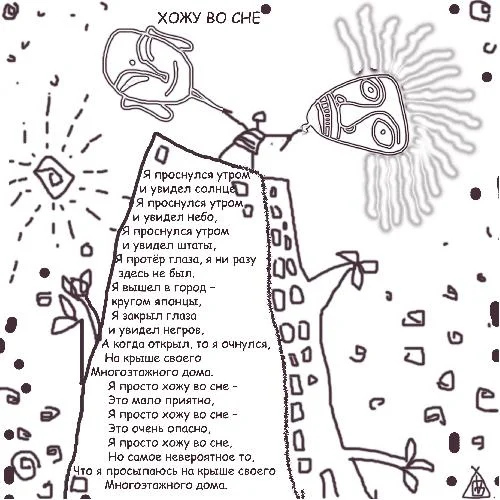 ХОЖУ ВО СНЕ
Я проснулся утром
и увидел солнце,
Я проснулся утром
и увидел небо,
Я проснулся утром
и увидел штаты,
Я протёр глаза, я ни разу
здесь не был.
Я вышел в город –
кругом японцы,
Я закрыл глаза
и увидел негров,
А когда открыл, то я очнулся,
На крыше своего
Многоэтажного дома.
Я просто хожу во сне –
Это мало приятно,
Я просто хожу во сне –
Это очень опасно,
Я просто хожу во сне,
Но самое невероятное то,
Что я просыпаюсь на крыше своего
Многоэтажного дома.